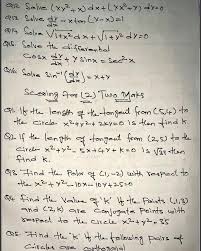 Q12 Solve (xy²+x)dx+(yx²+y)dy=0
Q13 Solve dy/dx - xtan(y-x)=1
Q14 Solve √1+x² dx + √1+y² dy=0
Q15 Solve the differential
Cosx dy/dx + ysinx = sec²x
Q16 Solve Sin⁻¹(dy/dx)=x+y
Scoring for (2) Two Marks
Q1 If the length of the tangent from (5,4) to
the circle x²+y²+2ky=0 is 1 then find k.
Q2 If the length of tangent from (2,5) to the
circle x²+y²-5x+4y+k=0 is √37 then
find k.
Q3 Find the Polar of (1,-2) with respect to
the x²+y²-10x-10y+25=0
Q4 find the value of 'k' if the Points (1,3)
and (2,k) are Conjugate Points with
respect to the circle x²+y²=35
Q5 Find the 'k' if the following pairs of
circles are orthogonal